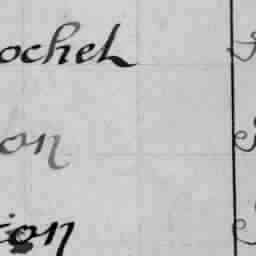 ochel
on
ton